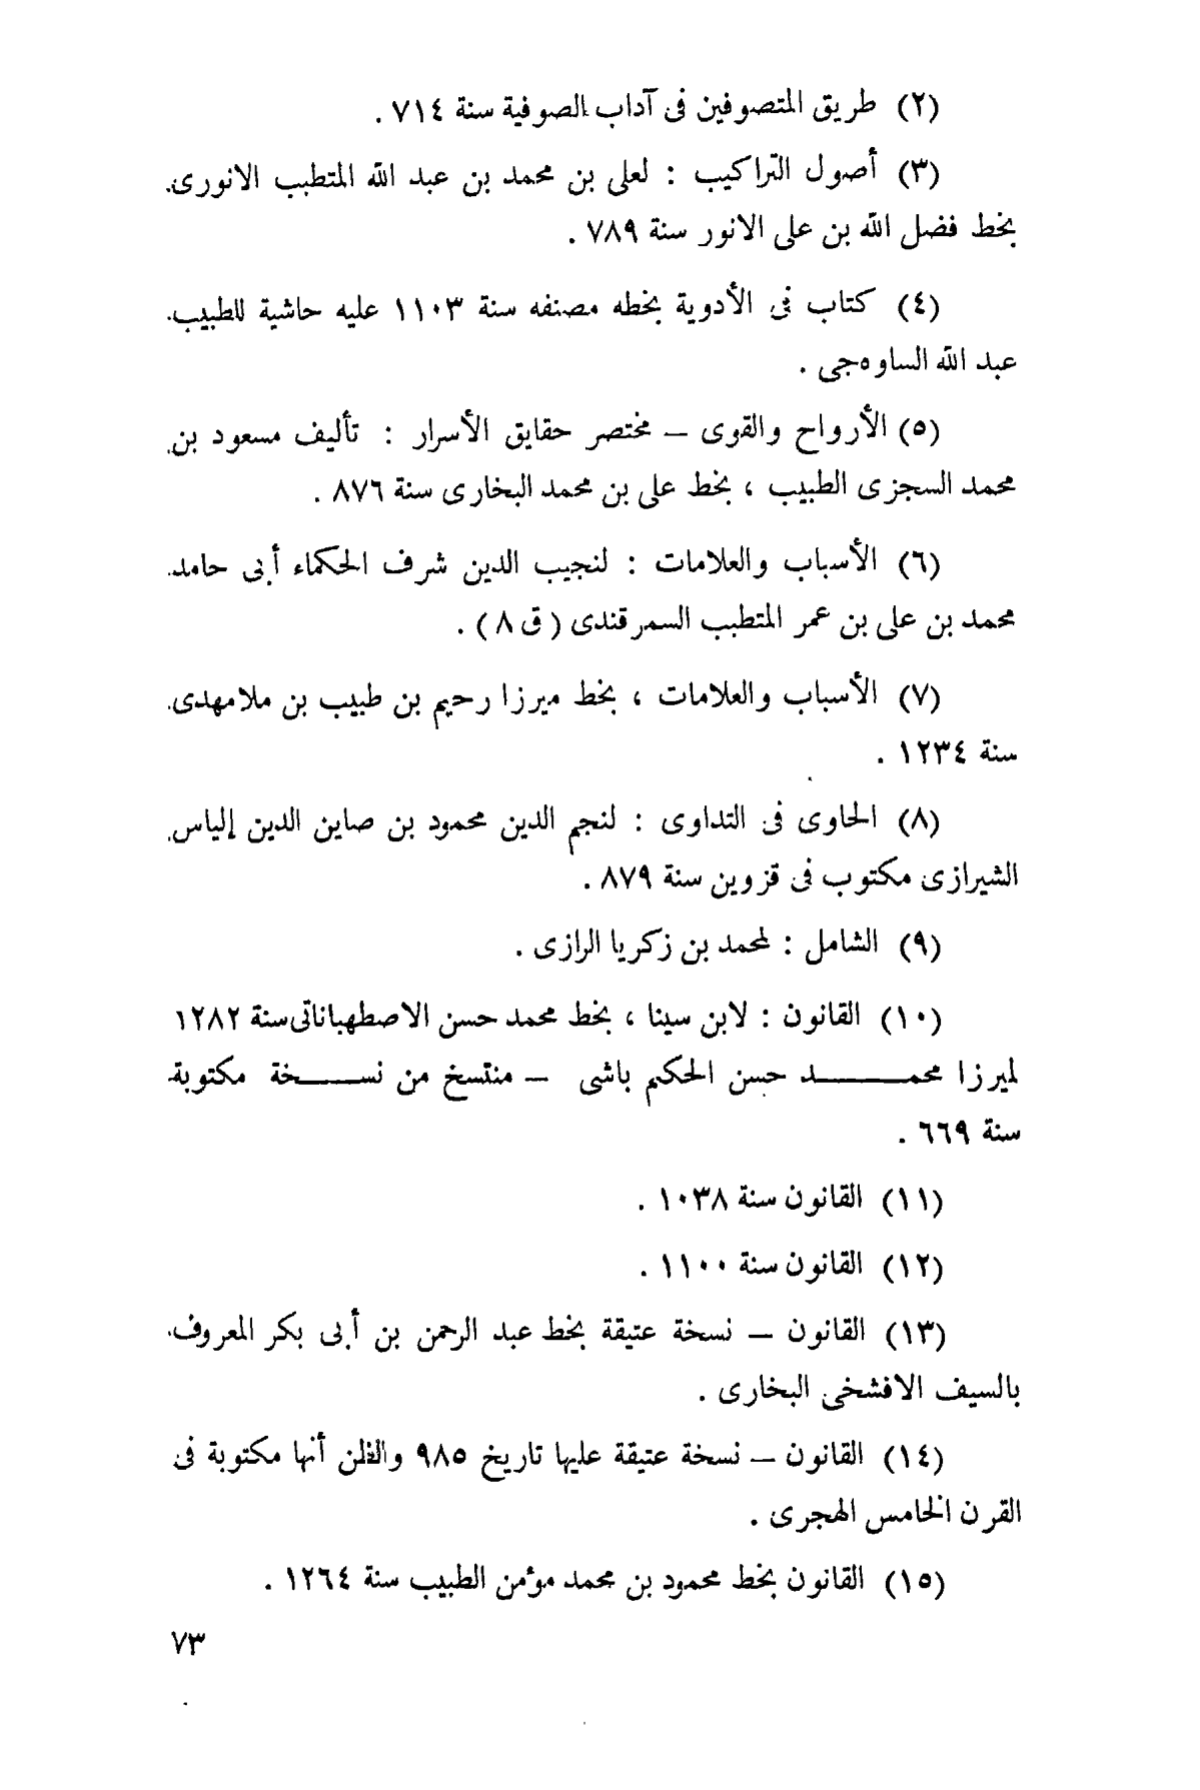 (٢) طريق المتصوفين فى آداب الصوفية سنة ٧١٤ .
(٣) أصول التراكيب : لعلى بن محمد بن عبد الله المتطبب الانورى
بخط فضل الله بن على الانور سنة ٧٨٩ .
(٤) كتاب فى الأدوية بخطه مصنفه سنة ١١٠٣ عليه حاشية للطبيب
عبد الله الساوه‌جى .
(٥) الأرواح والقوى — مختصر حقايق الأسرار : تأليف مسعود بن
محمد السجزى الطبيب ، بخط على بن محمد البخارى سنة ٨٧٦ .
(٦) الأسباب والعلامات : لنجيب الدين شرف الحكماء أبى حامد
محمد بن على بن عمر المتطبب السمرقندى ( ق ٨ ) .
(٧) الأسباب والعلامات ، بخط ميرزا رحيم بن طبيب بن ملامهدى
سنة ١٢٣٤ .
(٨) الحاوى فى التداوى : لنجم الدين محمود بن صاين الدين إلياس
الشيرازى مكتوب فى قزوين سنة ٨٧٩ .
(٩) الشامل : لمحمد بن زكريا الرازى .
(١٠) القانون : لابن سينا ، بخط محمد حسن الاصطهباناتى سنة ١٢٨٢
لميرزا محمـــــد حسن الحكيم باشى — منتسخ من نســـخة مكتوبة
سنة ٦٦٩ .
(١١) القانون سنة ١٠٣٨ .
(١٢) القانون سنة ١١٠٠ .
(١٣) القانون — نسخة عتيقة بخط عبد الرحمن بن أبى بكر المعروف
بالسيف الافشخى البخارى .
(١٤) القانون — نسخة عتيقة عليها تاريخ ٩٨٥ والظن أنها مكتوبة فى
القرن الخامس الهجرى .
(١٥) القانون بخط محمود بن محمد مؤمن الطبيب سنة ١٢٦٤ .
٧٣